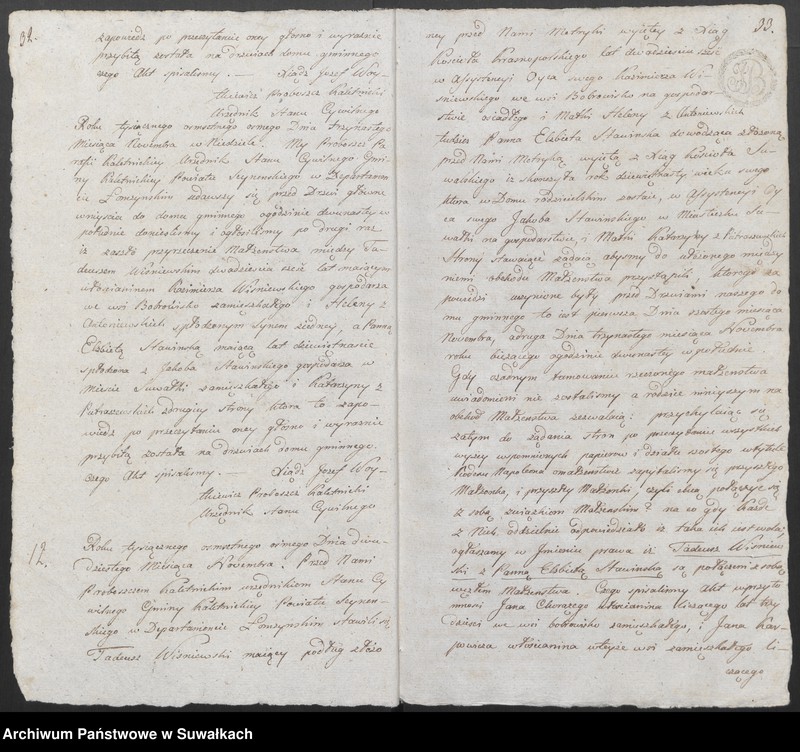 32.
zapowiedz po przeczytaniu oney głośno i wyraznie
przybitą została na drzwiach domu gminnego
czego Akt spisaliśmy. — Xiądz Jozef Woy-
tkiewicz Proboszcz Kaletnicki
Urzędnik Stanu Cywilnego
Roku tysiącznego osmsetnego osmego Dnia trzynastego
Miesiąca Nowembra w Niedziele. My Proboszcz Pa-
rafii Kaletnickiey Urzędnik Stanu Cywilnego Gmi-
ny Kaletnickiey Powiatu Seynenskiego w Departamen-
cie Łomzynskim udawszy się przed Drzwi główne
wniyscia do domu gminnego ogodzinie dwunastey w
południe donieslismy i ogłosilismy po drugi raz
iż zaszło przyrzeczenie Małżenstwa między Ta-
deuszem Wiśniewskim dwadziescia szesć lat maiącym
włoscianinem Kazimierza Wiśniewskiego gospodarza
we wsi Bobrowisko zamieszkałego i Heleny z
Antoniewskich spłodzonym synem ziedney, a Panną
Elzbietą Stawinską maiącą lat dziewiętnascie
spłodzoną z Jakuba Stawinskiego gospodarza w
Miescie Suwałki zamieszkałego i Katarzyny z
Pietraszewskich zdrugiey strony ktora to zapo-
wiedz po przeczytaniu oney głośno i wyraznie
przybitą została na drzwiach domu gminnego
czego Akt spisalismy. — Xiądz Jozef Woy-
tkiewicz Proboszcz Kaletnicki
Urzędnik Stanu Cywilnego
12.
Roku tysiącznego osmsetnego osmego Dnia dwu-
dziestego Miesiąca Novembra. Przed Nami
Proboszczem Kaletnickim urzędnikiem Stanu Cy-
wilnego Gminy Kaletnickiey Powiatu Seynen-
skiego w Departamencie Łomzynskim stawili się
Tadeusz Wiśniewski maiący podług złożo
33.
ney przed Nami Metryki wyiętey z Xiąg
Kościoła Krasnopolskiego lat dwadziescia szesć
w Assystencyi Oyca swego Kazimierza Wi-
śniewskiego we wsi Bobrowisko na gospodar-
stwie osiadłego i Matki Heleny z Antoniewskich
tudzież Panna Elzbieta Stawinska dowodząca złożoną
przed Nami Metryką wyiętą z Xiąg Kościoła Su-
walskiego iż skonczyła rok dziewiętnasty wieku swego
ktora w Domu rodzicielskim zostaie, w Assystencyi Oy-
ca swego Jakuba Stawinskiego w Miasteczku Su-
wałki na gospodarstwie, i Matki Katarzyny z Pietraszewskich
Strony stawaiące żądaią abysmy do ułożonego między
niemi obchodu Małżenstwa przystąpili, ktorego za
powiedzi uczynione były przed Drzwiami naszego do
mu gminnego to iest pierwsza Dnia szostego miesiąca
Novembra, adruga Dnia trzynastego miesiąca Novembra
roku bieżącego ogodzinie dwunastey w południe
Gdy ożadnym tamowaniu rzeczonego małżenstwa
uwiadomieni nie zostalismy a rodzice ninieyszym na
obchod Małżenstwa zezwalaią: przychylaiąc się
zatym do żądania stron po przeczytaniu wszystkich
wyżey wspomnionych papierow i działu szostego wtytule
Kodexu Napoleona omałżenstwie zapytalismy się przyszłego
Małżonka, i przyszłey Małżonki, czyli chcą połączyć się
z sobą związkiem Małżenskim? na co gdy każde
z Nich oddzielnie odpowiedziało iż taka ich iest wola;
ogłaszamy w Imieniu prawa iż Tadeusz Wiśniew-
ski z Panną Elzbietą Stawinską są połączeni z sobą
węzłem Małżenstwa. Czego spisalismy Akt wprzyto
mnosci Jana Chorążego włoscianina liczącego lat trzy
dziesci we wsi bobrowisko zamieszkałego, i Jana Kar-
powicza włoscianina wteyże wsi zamieszkałego li-
czącego
Archiwum Państwowe w Suwałkach